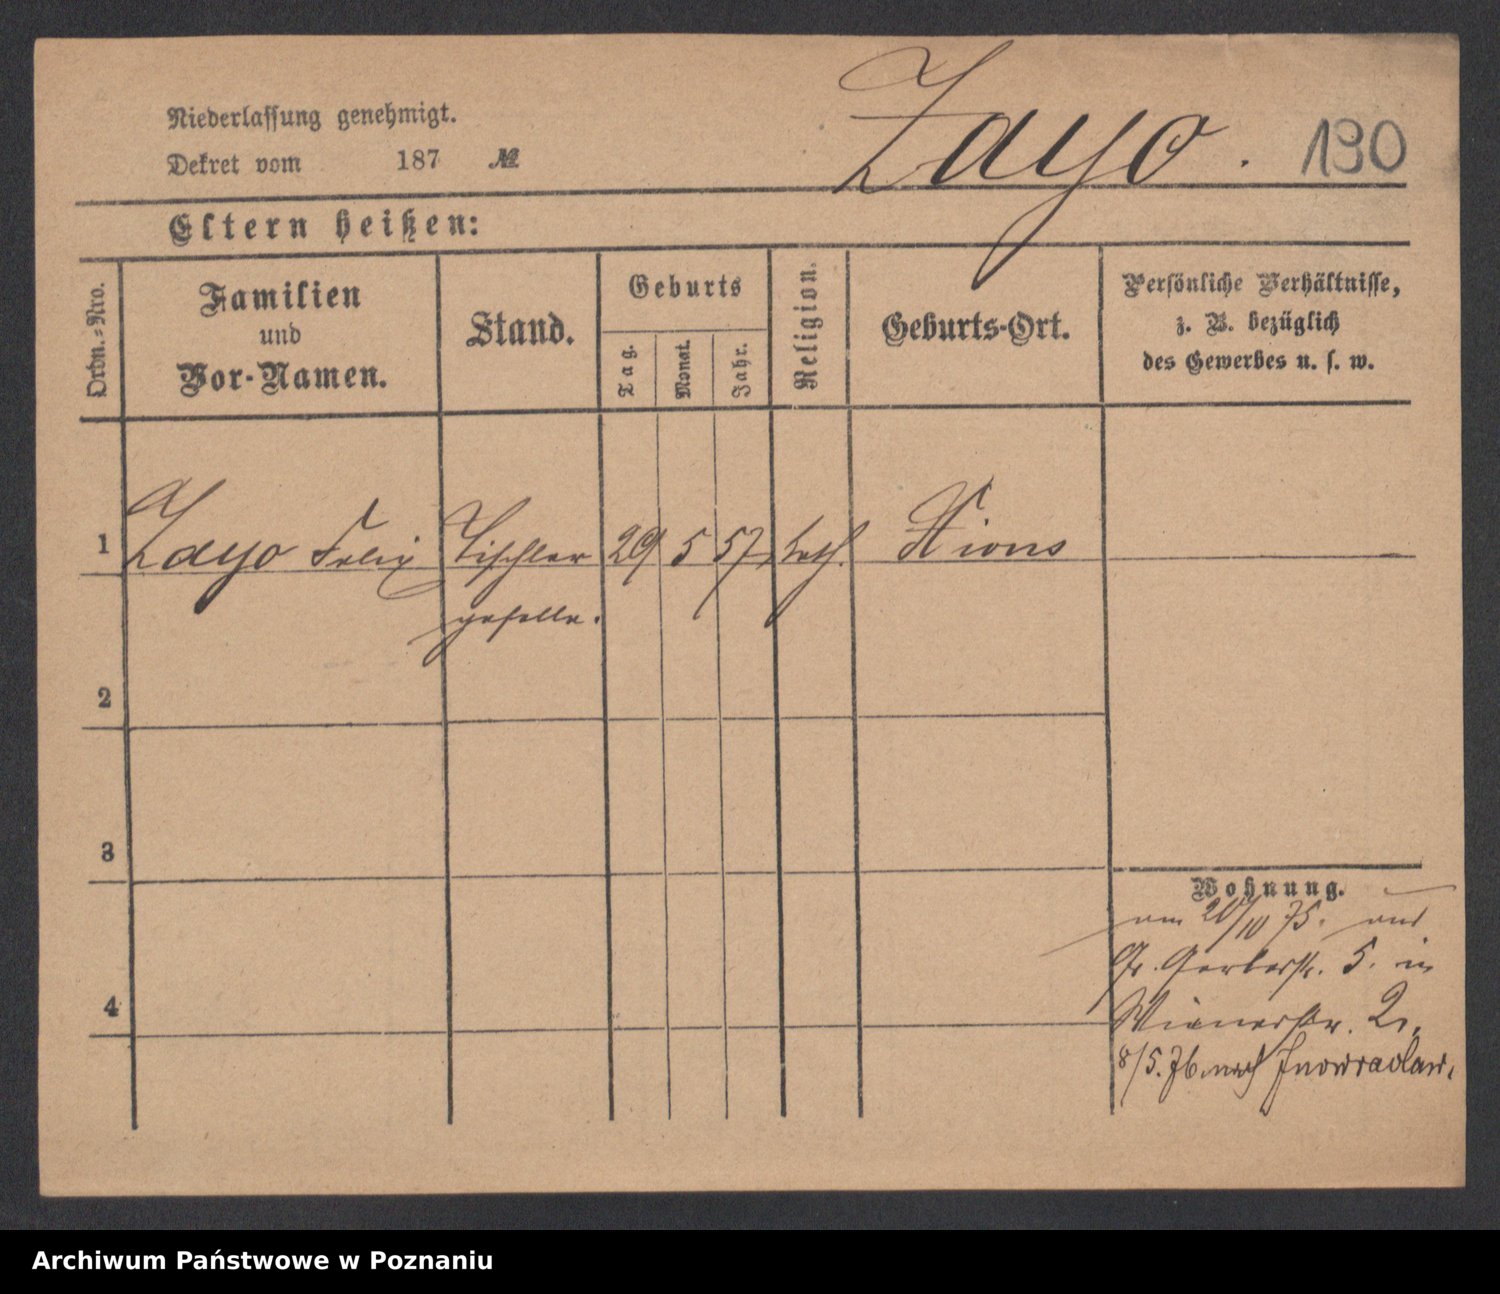 Niederlassung genehmigt.
Dekret vom 187 №
Zayo. 190
Eltern heißen:
Ordn.-Nro.
Familien und Vor-Namen.
Stand.
Geburts
Tag.
Monat.
Jahr.
Religion.
Geburts-Ort.
Persönliche Verhältnisse,
z. B. bezüglich
des Gewerbes u. s. w.
1 Zayo Felix Tischler 29 5 57 kath. Xions
geselle.
2
3
Wohnung.
am 20/10 75. aus
Gr. Gerberstr. 5. in
4
Wienerstr. 2.
8/5. 76. nach Inowraclaw.
Archiwum Państwowe w Poznaniu